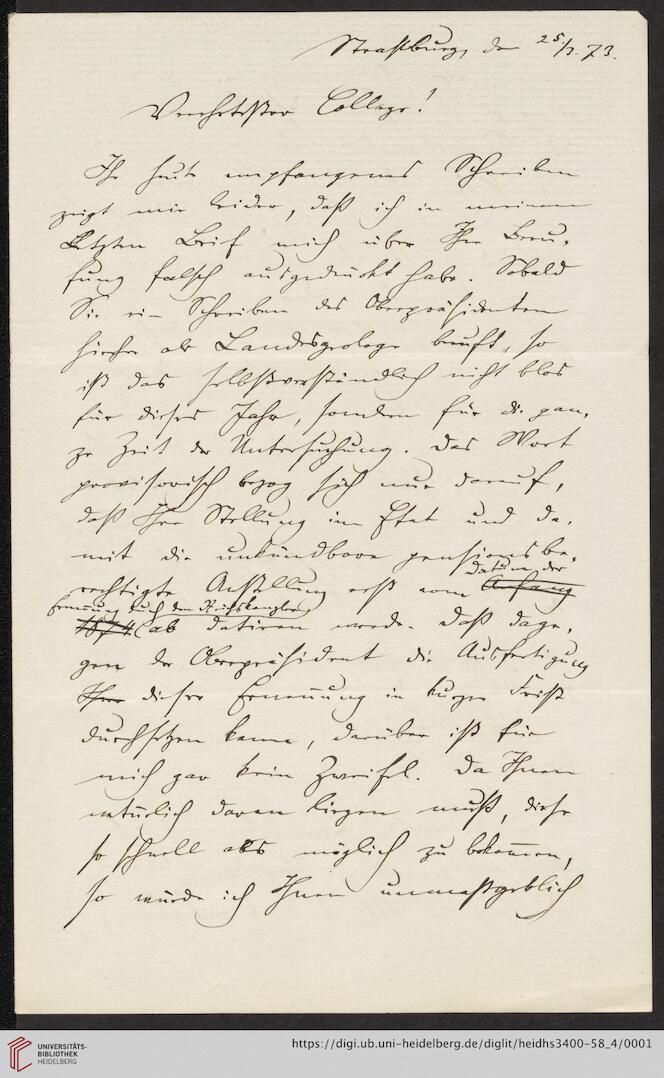 Straßburg, den 25/7. 73.
Verehrtester College!
Ihr heute empfangenes Schreiben
zeigt mir leider, daß ich in meinem
letzten Brief mich über Ihre Beru-
fung falsch ausgedrückt habe. Sobald
Sie ein Schreiben des Oberpräsidenten
hierher als Landesgeologe beruft, so
ist das selbstverständlich nicht blos
für dieses Jahr, sondern für die gan-
ze Zeit der Untersuchung. Das Wort
provisorisch bezog sich nur darauf,
daß Ihre Stellung im Etat und da-
mit die unkündbare pensionsbe-
rechtigte Anstellung erst vom Anfang Datum der
Ernennung durch den Reichskanzler
1874 ab datiren werde. Daß dage-
gen der Oberpräsident die Ausfertigung
Ihre dieser Ernennung in kurzer Frist
durchsetzen kann, darüber ist für
mich gar kein Zweifel. Da Ihnen
natürlich daran liegen muß, diese
so schnell als möglich zu bekommen,
so würde ich Ihnen unmaßgeblich
UNIVERSITÄTS-
BIBLIOTHEK
HEIDELBERG
https://digi.ub.uni-heidelberg.de/diglit/heidhs3400-58_4/0001